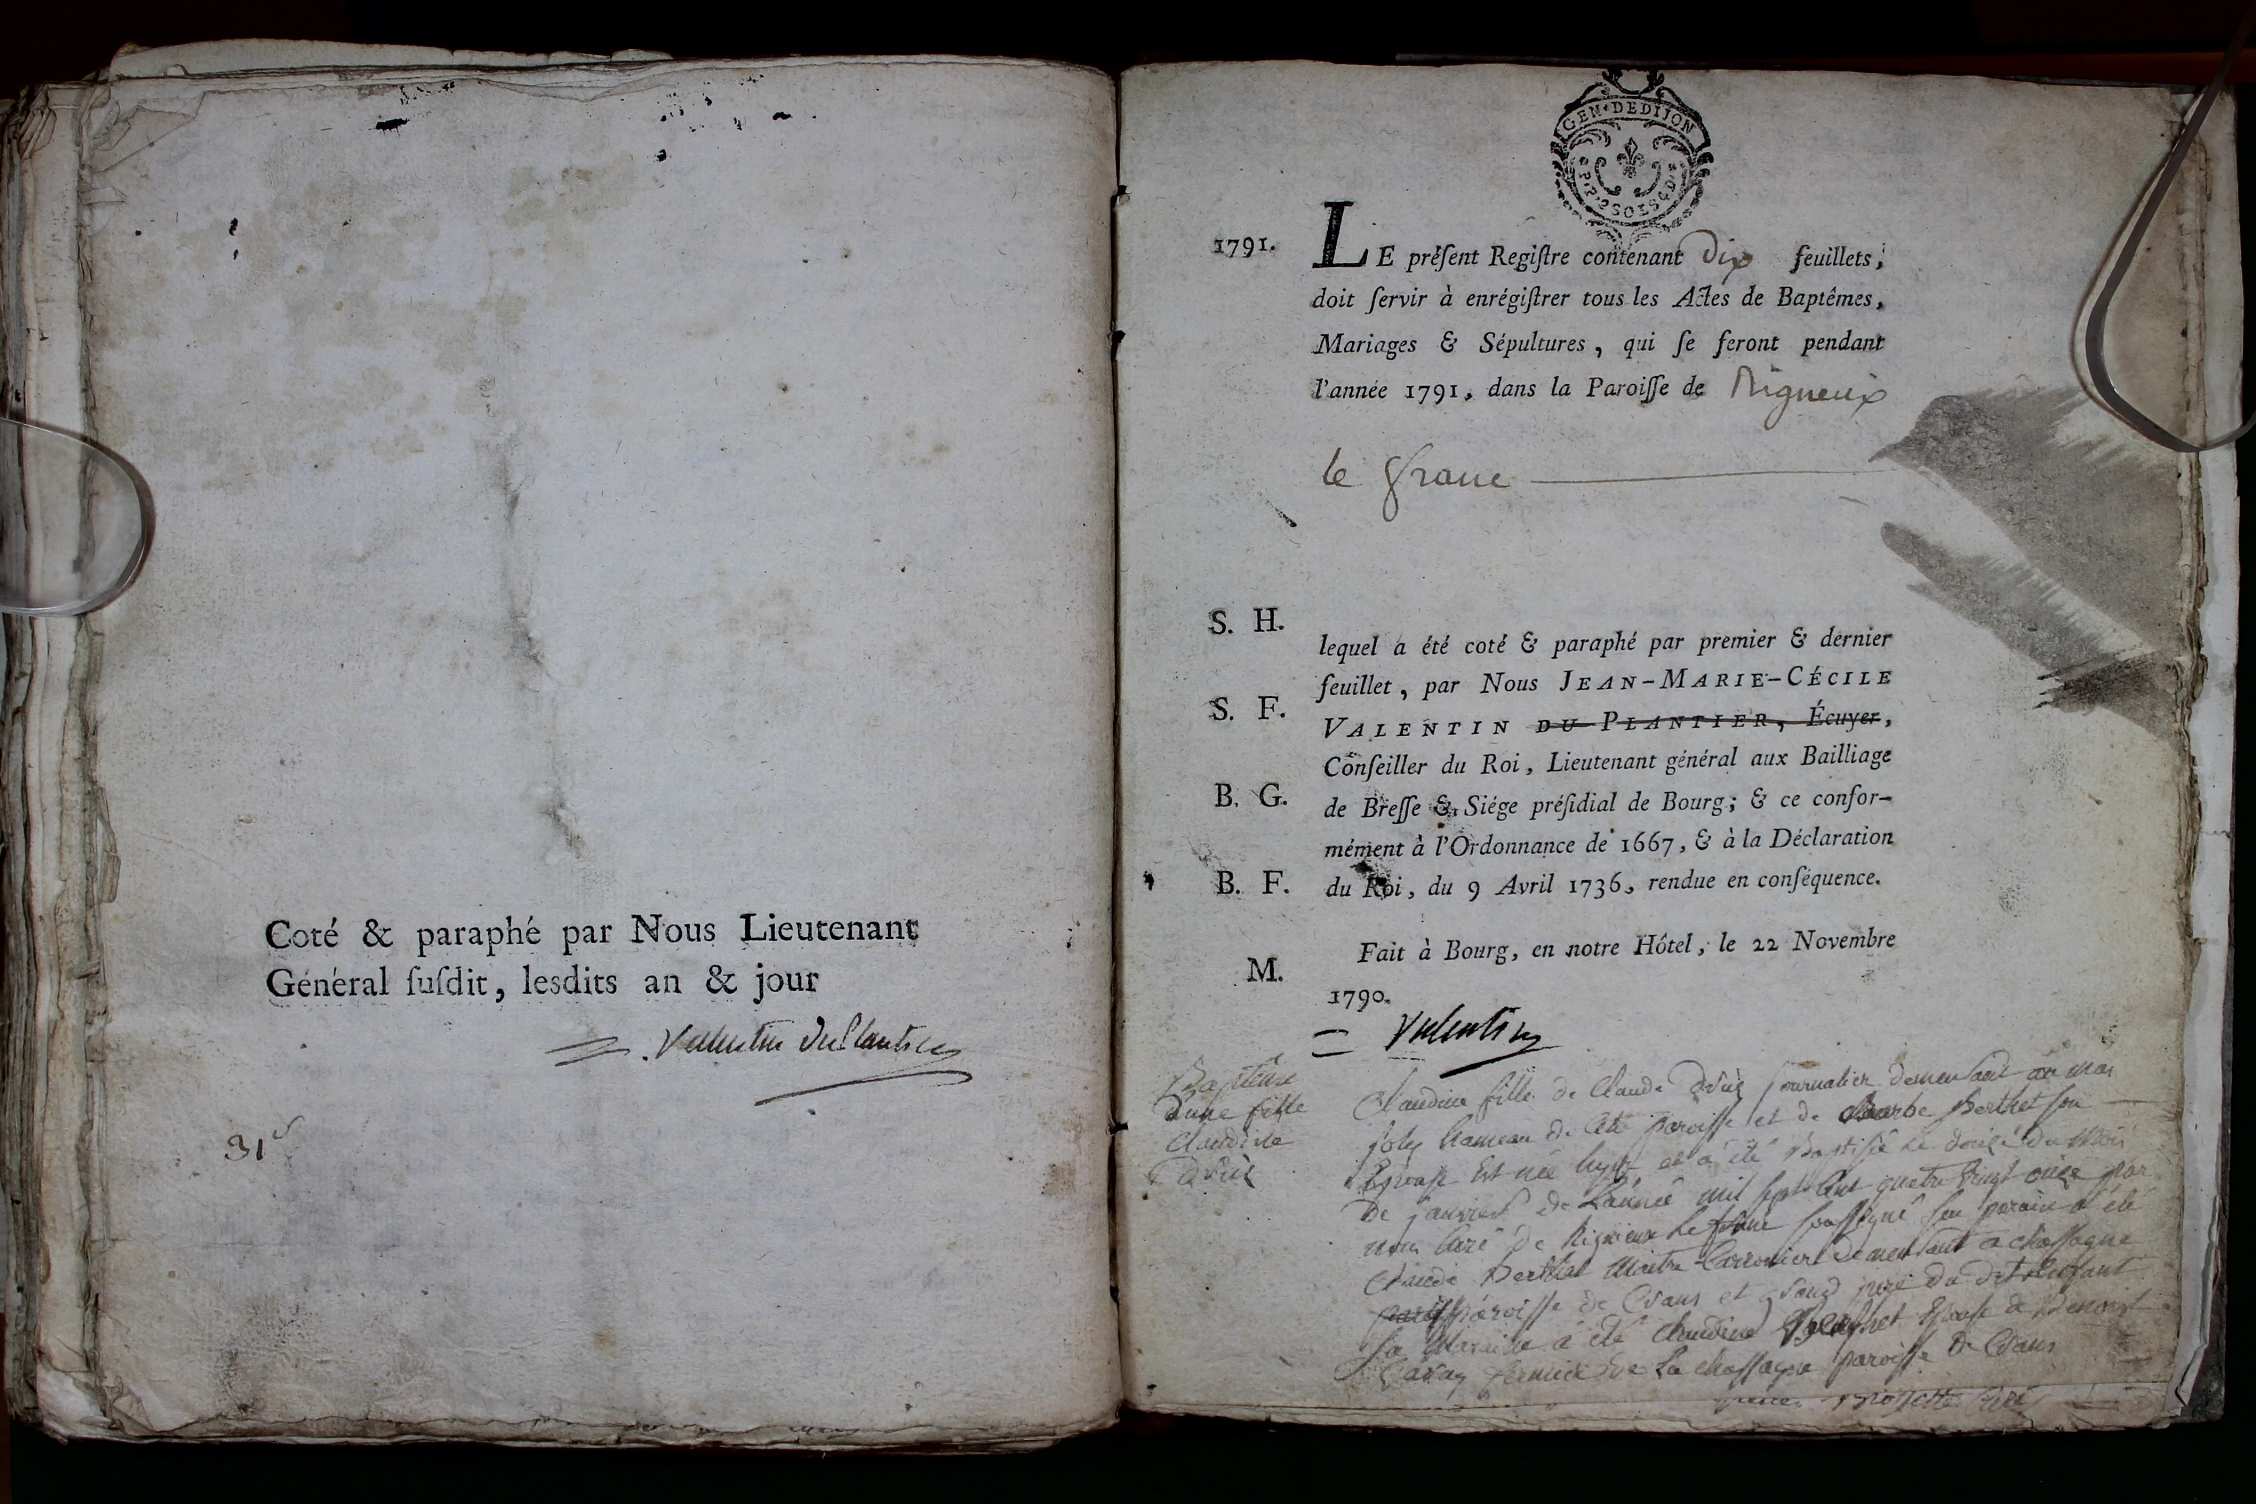 Coté & paraphé par Nous Lieutenant
Général ſuſdit, lesdits an & jour
Valentin duPlantier
31
GEN·DEDIJON
1791.
LE préſent Regiſtre contenant dix feuillets,
doit ſervir à enrégiſtrer tous les Actes de Baptêmes,
Mariages & Sépultures, qui ſe feront pendant
l'année 1791, dans la Paroiſſe de Rigneux
le franc
S. H.
S. F.
B. G.
B. F.
M.
lequel a été coté & paraphé par premier & dernier
feuillet, par Nous JEAN-MARIE-CÉCILE
VALENTIN DU PLANTIER, Écuyer,
Conſeiller du Roi, Lieutenant général aux Bailliage
de Breſſe & Siége préſidial de Bourg; & ce confor-
mément à l'Ordonnance de 1667, & à la Déclaration
du Roi, du 9 Avril 1736, rendue en conſéquence.
Fait à Bourg, en notre Hôtel, le 22 Novembre
1790.
Valentin
Baptême
d'une fille
Claudine
Claudine fille de Claude journalier demeurant au mas
joly hameau de cete paroisse et de Barbe Berthet son
Epouse Est née hyer et a été Baptisée Le douze du Mois
De janvier de L'année mil sept Cent quatre Vingt onze par
nous Curé de Rigneux Le franc soussigné son parain a été
Claude Berthet Maitre Carronier demeurant a chassagne
paroisse de Crans et grand pere du dit Enfant
La Maraine a été Claudine Berthet Epouse de Benoist
fermier de La chassagne paroisse de Crans
Curé